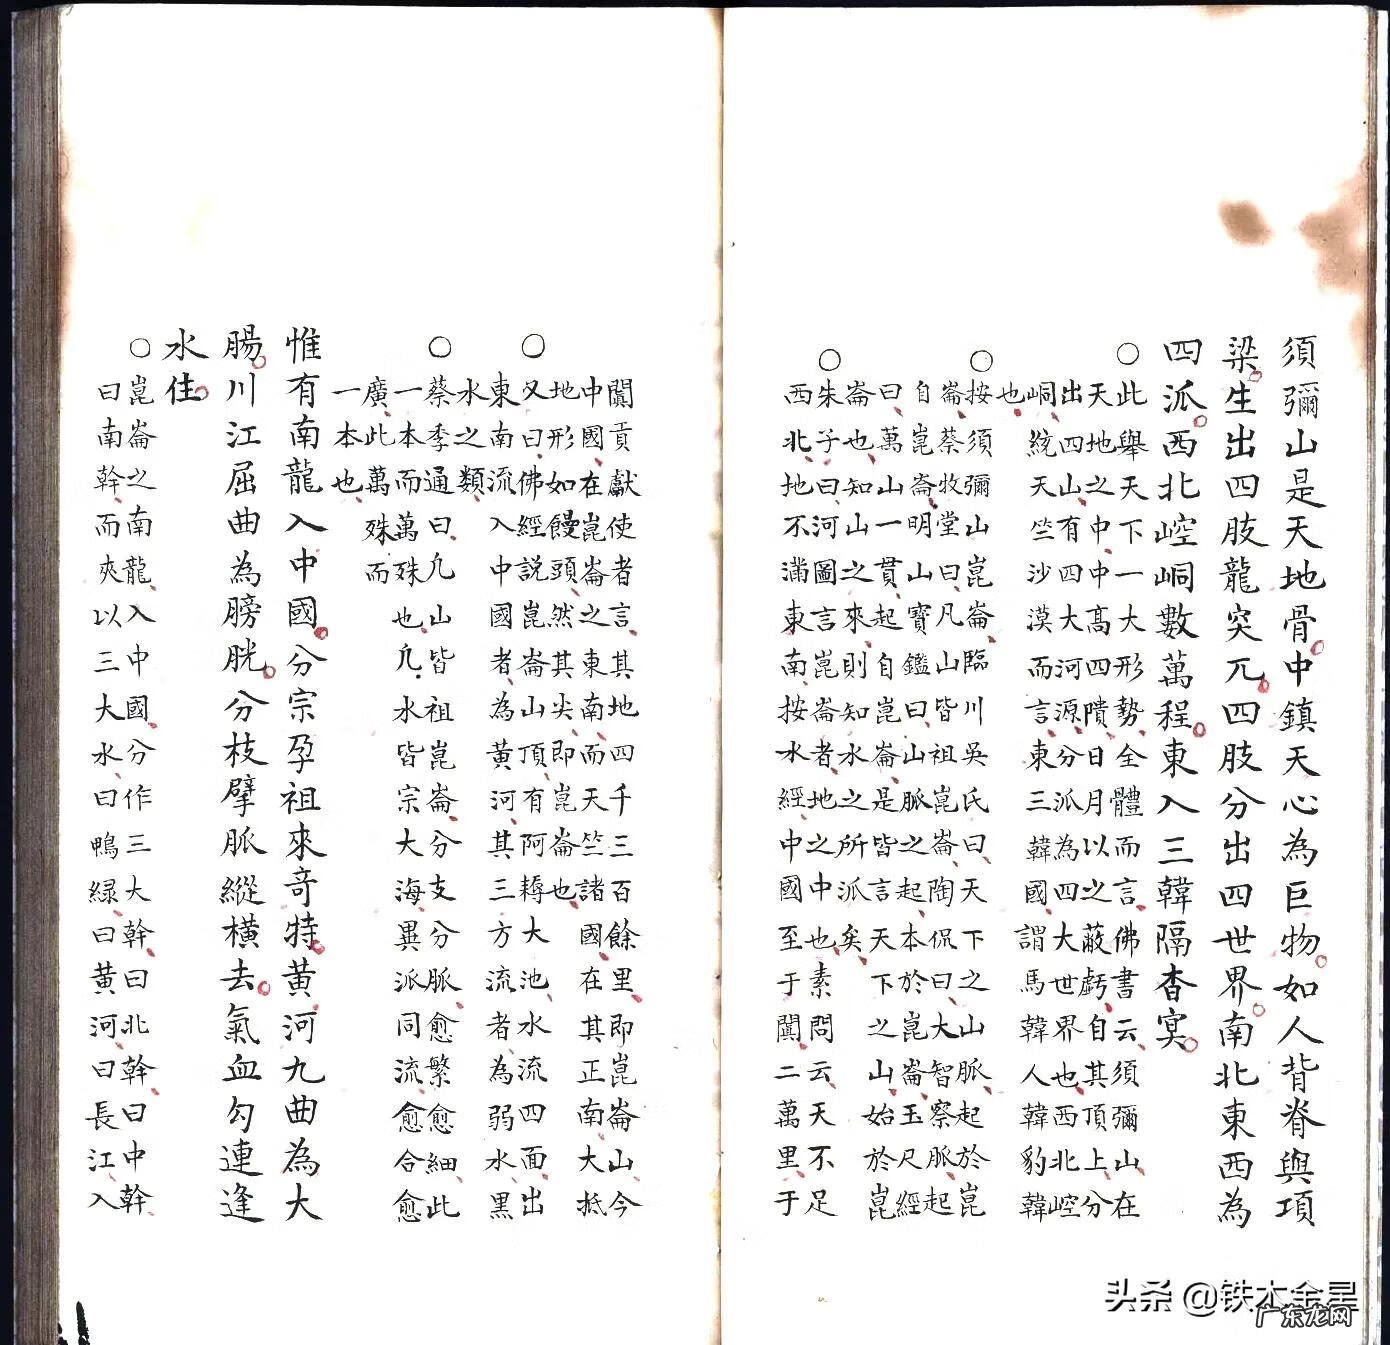 須彌山是天地骨中鎮天心為巨物如人背脊與項
梁生出四肢龍突兀四肢分出四世界南北東西為
四派西北崆峒數萬程東入三韓隔杳冥
○此舉天下一大形勢全體而言佛書云須彌山在
天地之中中高四隤日月以之蔽虧自其頂上分
出四山有四大河源分派為四大世界也西北崆
峒統天竺沙漠而言東三韓國謂馬韓人韓豹韓
也
○按須彌山崑崙臨川吳氏曰天下之山脈起於崑
崙蔡牧堂曰凡山皆祖崑崙陶侃曰大智察脈起
自崑崙明山寶鑑曰山脈之起本於崑崙玉尺經
曰萬山一貫起自崑崙是皆言天下之山始於崑
崙也知山之來則知水之所派矣
○朱子曰河圖言崑崙者地之中也素問云天不足
西北地不滿東南按水經中國至于闐二萬里于
闐貢獻使者言其地四千三百餘里即崑崙山今
中國在崑崙之東南而天竺諸國在其正南大抵
地形如饅頭然其尖即崑崙也
○又曰佛經説崑崙山頂有阿耨大池水流四面出
東南流入中國者為黄河其三方流者為弱水黑
水之類
○蔡季通曰凡山皆祖崑崙分支分脈愈繁愈細此
一本而萬殊也凡水皆宗大海異派同流愈合愈
廣此萬殊而
一本也
惟有南龍入中國分宗孕祖來竒特黄河九曲為大
腸川江屈曲為膀胱分枝擘脈縱橫去氣血勾連逢
水住
○崑崙之南龍入中國分作三大幹曰北幹曰中幹
曰南幹而夾以三大水曰鴨緑曰黄河曰長江入
头条 @铁木金星
广东龙网